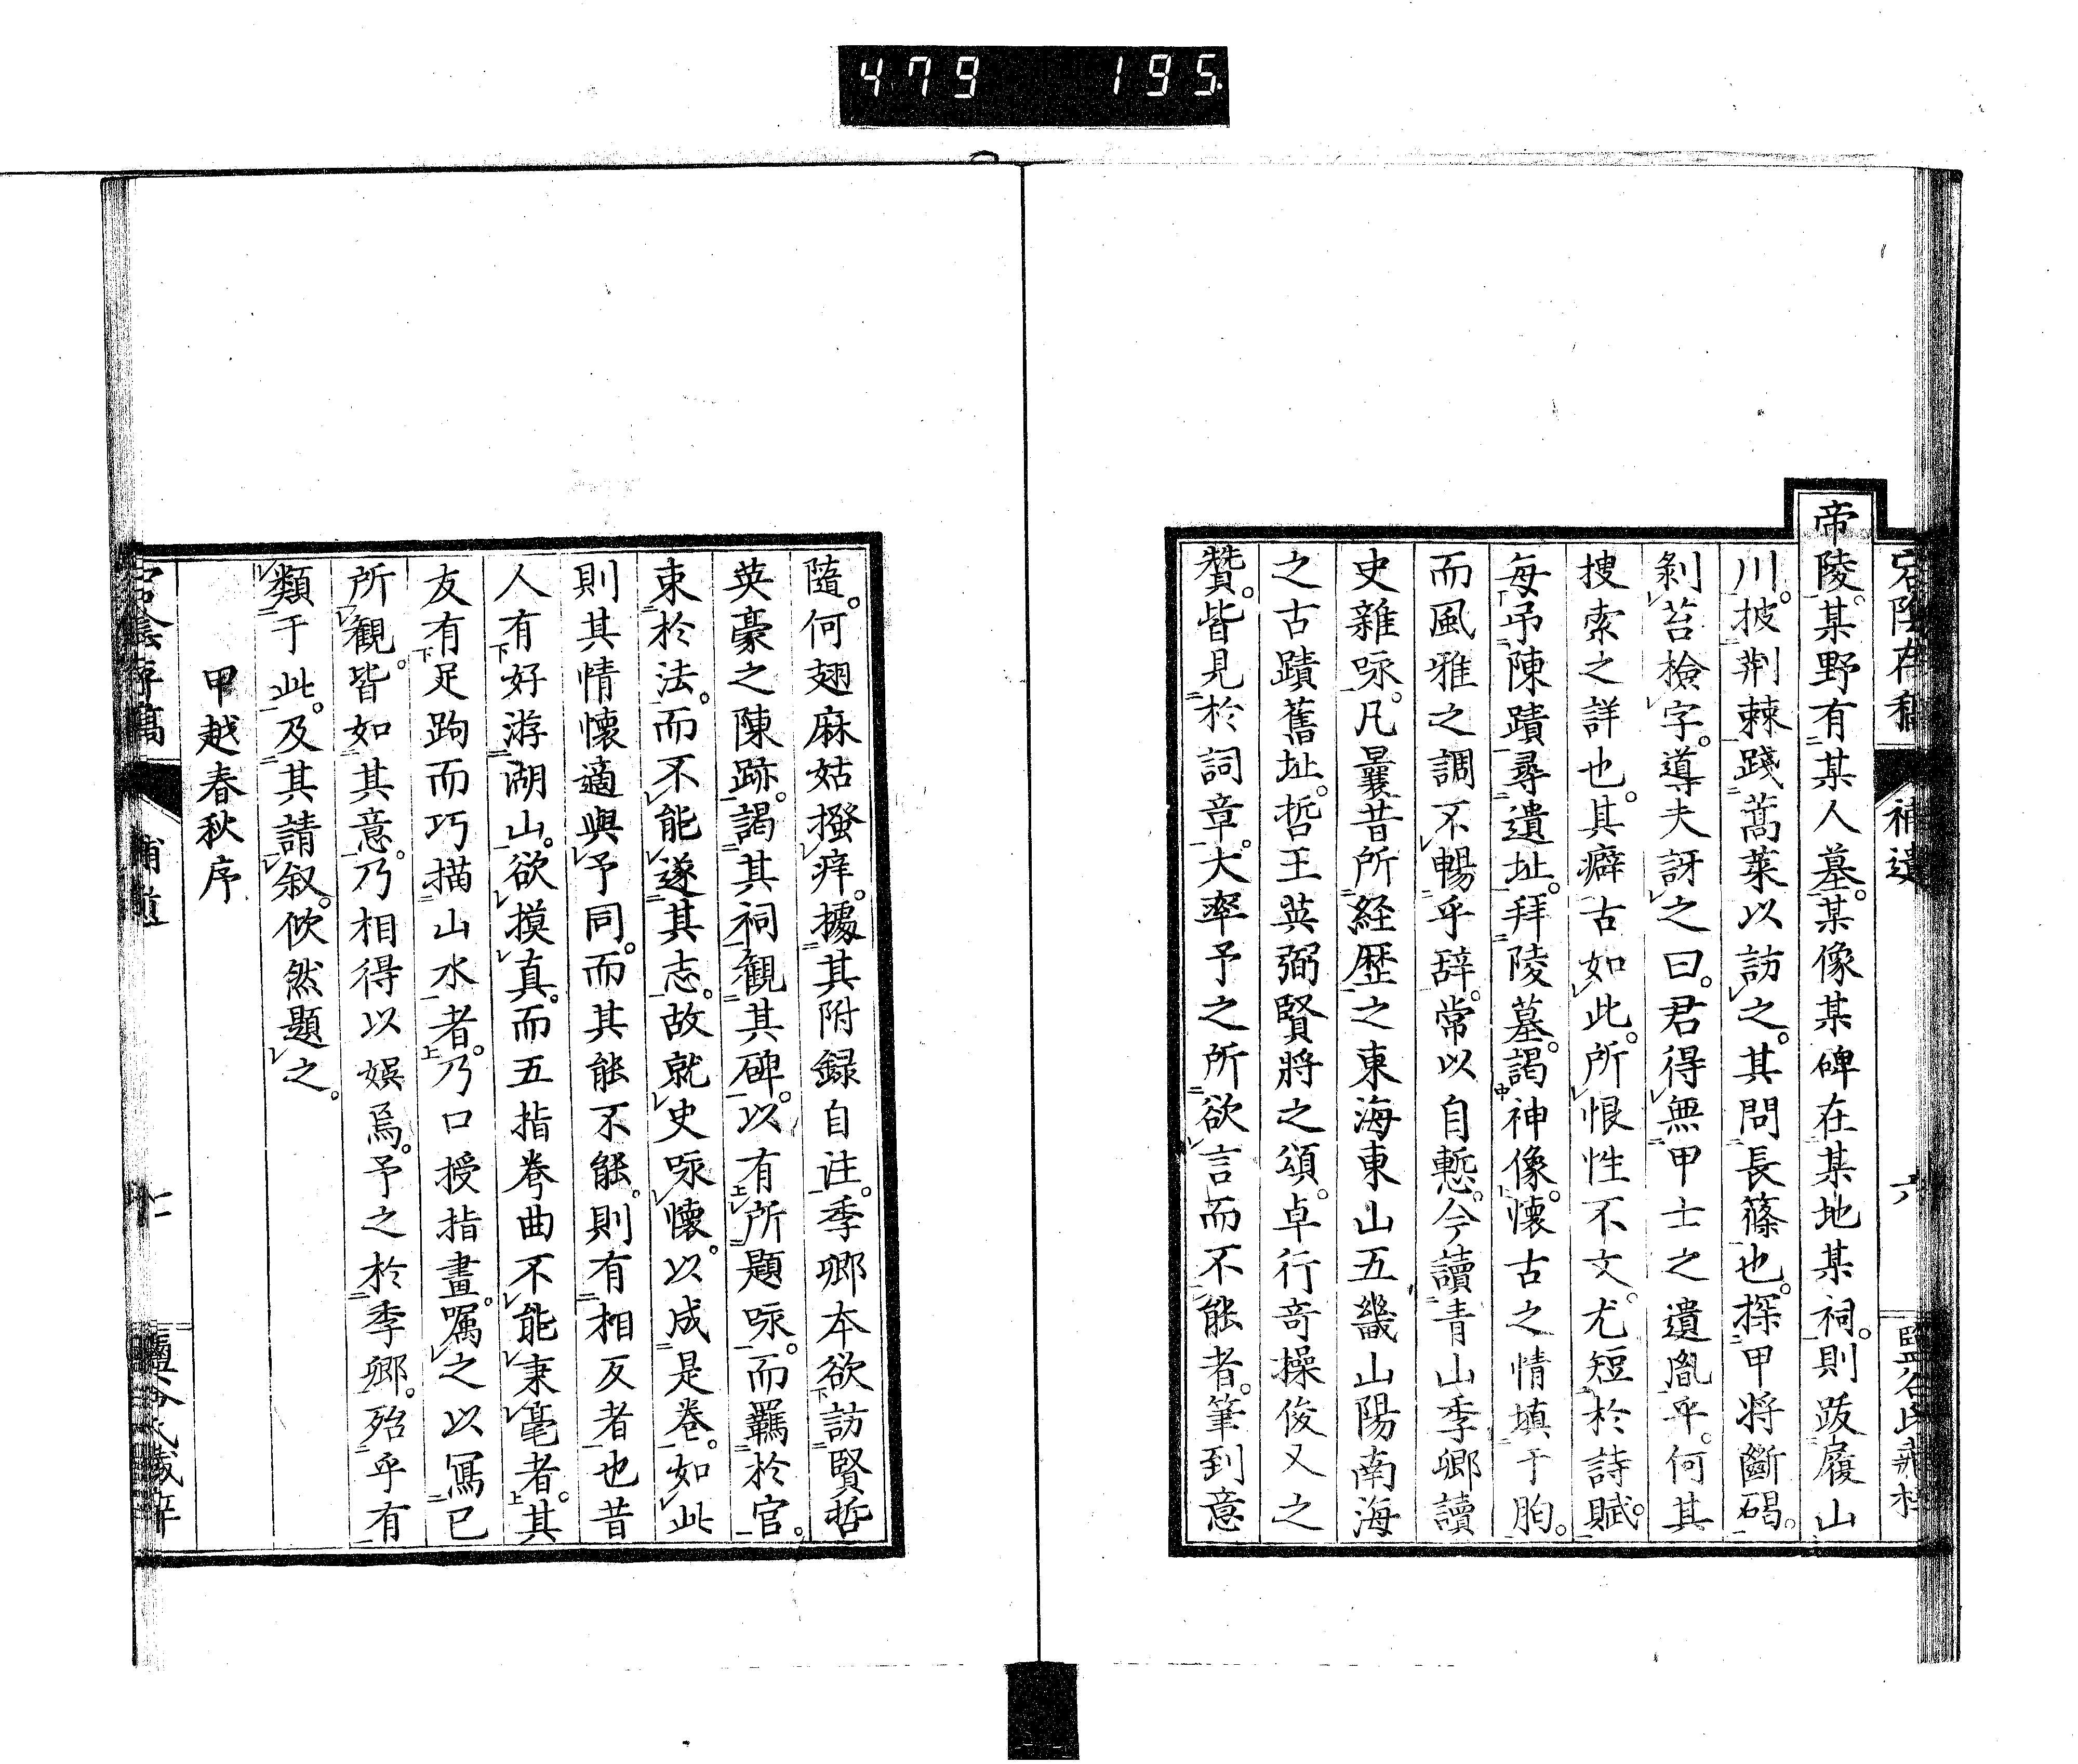 479 195
宕陰存稿 補遺 六
帝陵。某野有某人墓。某像某碑在某地某祠。則跋履山
川。披荆棘踐蒿萊以訪之。其問長篠也。探甲將斷碣。
剝苔檢字。導夫訝之曰。君得無甲士之遺胤乎。何其
捜索之詳也。其癖古如此。所恨性不文。尤短於詩賦。
每弔陳蹟尋遺址。拜陵墓。謁神像。懷古之情填于胸。
而風雅之調不暢乎辭。常以自慙。今讀青山季卿讀
史雜咏。凡曩昔所経歷之東海東山五畿山陽南海
之古蹟舊址。哲王英弼賢將之頌。卓行竒操俊乂之
贊。皆見於詞章。大率予之所欲言而不能者。筆到意
隨。何翅麻姑搔痒。據其附録自注。季卿本欲訪賢哲
英豪之陳跡。謁其祠觀其碑。以有所題咏。而羈於官。
束於法。而不能遂其志。故就史咏懷。以成是卷。如此
則其情懷適與予同。而其能不能。則有相反者也昔
人有好游湖山。欲摸真。而五指拳曲不能秉毫者。其
友有足跔而巧描山水者。乃口授指畫。嘱之以寫已
所觀。皆如其意。乃相得以娯焉。予之於季卿。殆乎有
類于此。及其請叙。俽然題之。
甲越春秋序
宕陰存稿 補遺 七